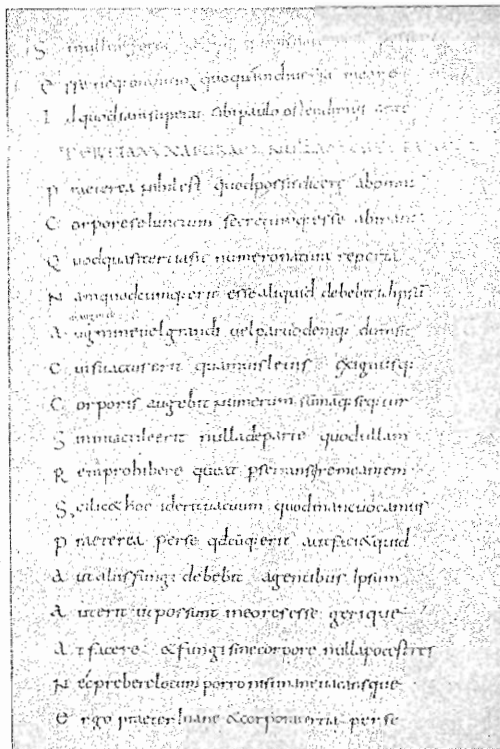 S i nullum foret
E sse neq; omnino quoquam diversa meare
I d quod iam supera tibi paulo ostendimus ante
TERTIAM NATURAM NULLAM ESSE
P raeterea nihil est quod possis dicere ab omni
C orpore seiunctum secretumq; esse ab inani
Q uod quasi tertia sit numero natura reperta
N am quodcumq; erit esse aliquid debebit id ipsū
A ugmine vel grandi vel parvo deniq; dum sit
C ui si tactus erit quamvis levis exiguusq;
C orporis augebit numerum summāq; sequitur
S in intactile erit nulla de parte quod ullam
R em prohibere queat p se transire meantem
S cilic& hoc id erit vacuum quod inane vocamus
P raeterea per se qdcūq; erit aut faci& quid
A ut aliis fungi debebit agentibus ipsum
A ut erit ut possunt in eo res esse gerique
A t facere & fungi sine corpore nulla potest res
N ec prebere locum porro nisi inane vacansque
E rgo praeter inane & corpora tertia per se